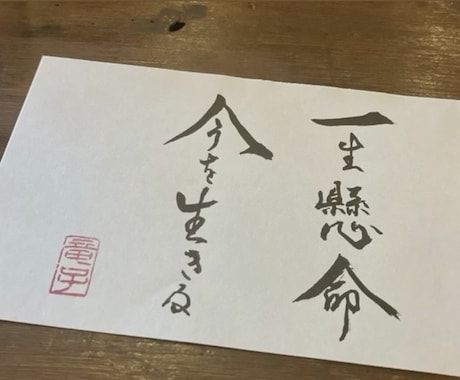 一生懸命
今を生きる
竜子